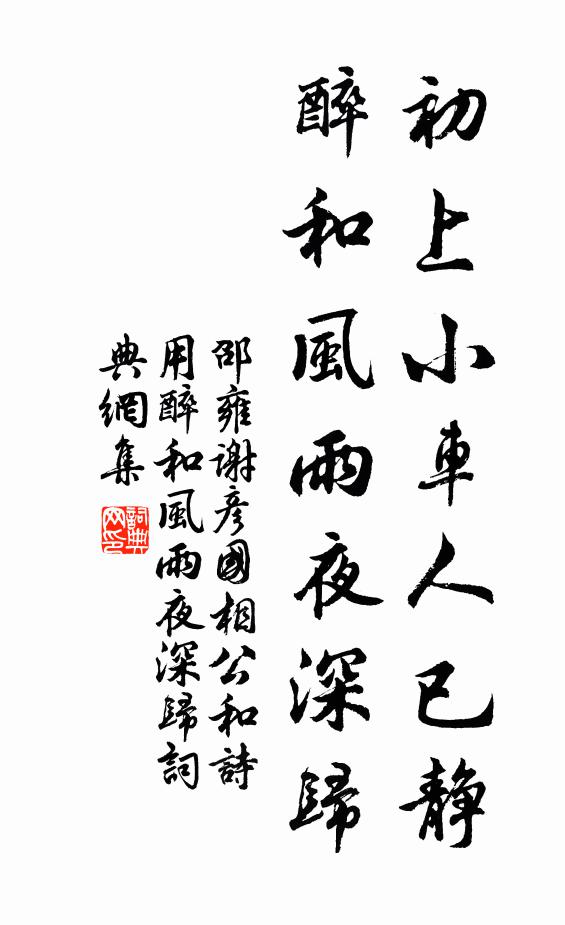 初上小車人已静
醉和風雨夜深歸
邵雍謝彦國相公和詩
用醉和風雨夜深歸詞
典網集
詞典网印